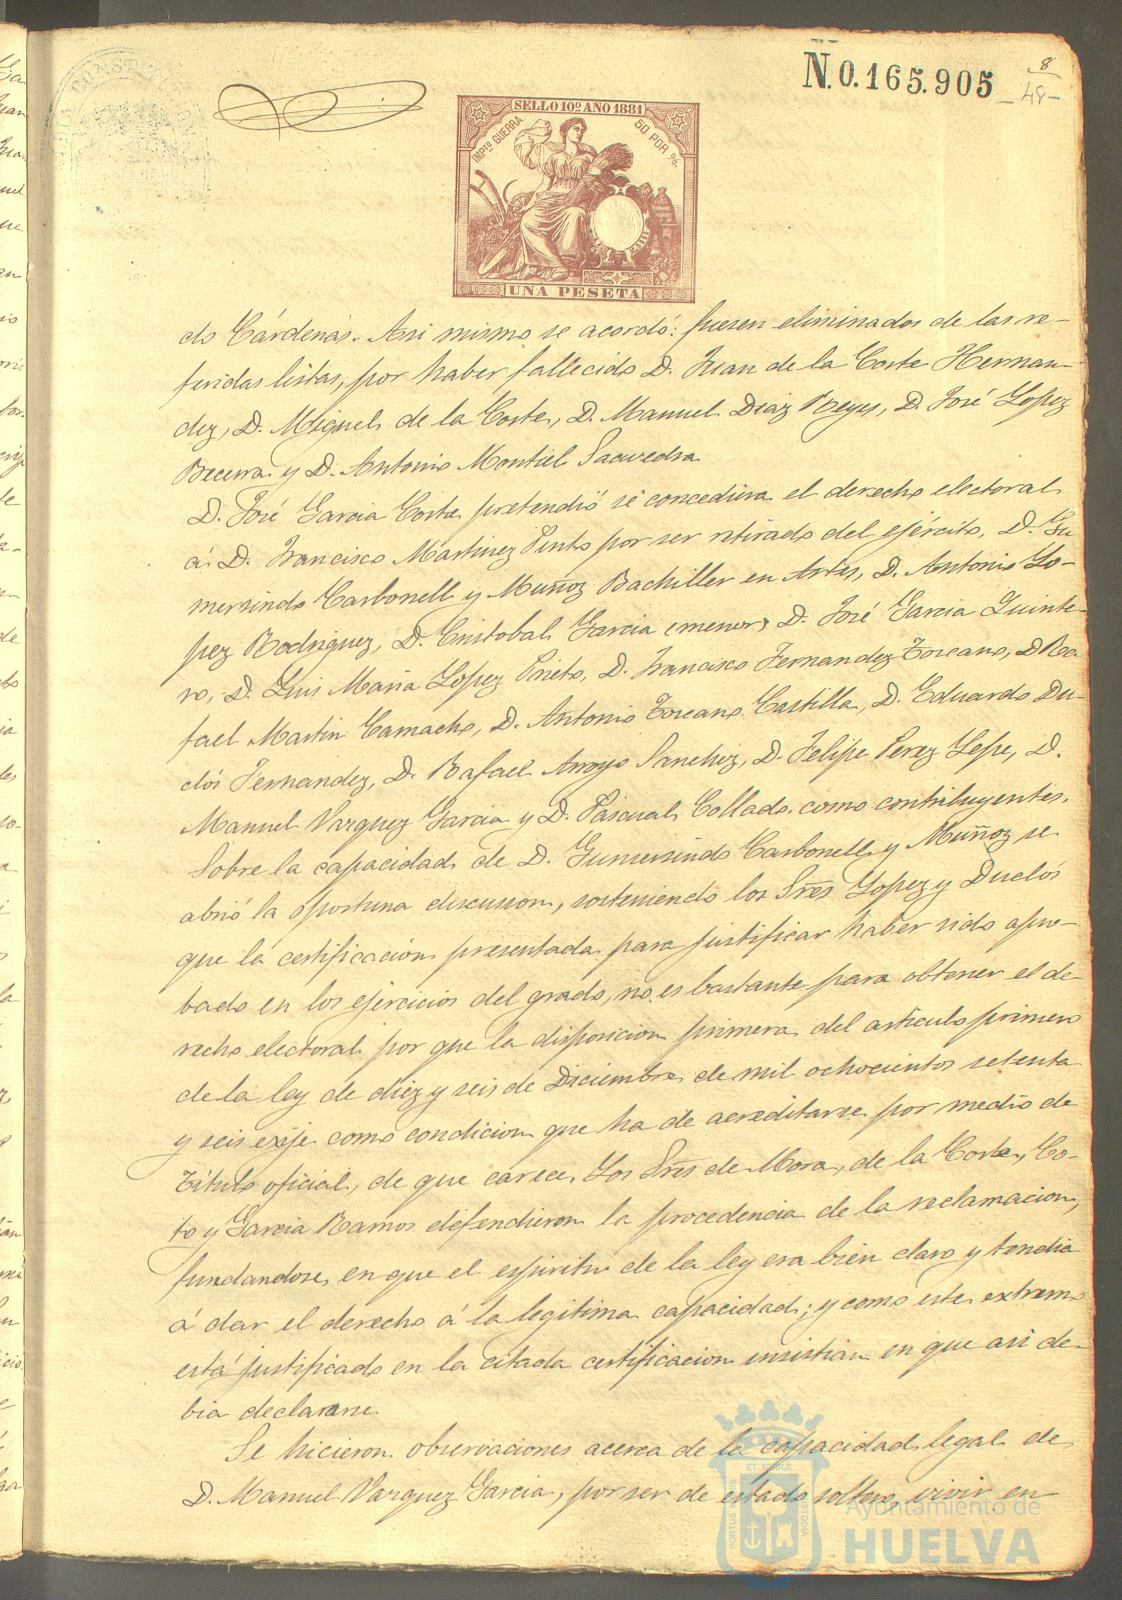 N.0.165.905
8
48
SELLO 10º AÑO 1881
IMPtº GUERRA
50 POR %
UNA PESETA
do Cárdenas. Asi mismo se acordó: fuesen eliminados de las re-
feridas listas, por haber fallecido D. Juan de la Corte Hernan-
dez, D. Miguel de la Corte, D. Manuel Diaz Reyes, D. José Lopez
Becerra y D. Antonio Montiel Saavedra
D. José Garcia Corte pretendió se concediera el derecho electoral
á D. Francisco Martinez Pinto por ser retirado del ejército, D. Gu
mersindo Carbonell y Muñoz Bachiller en Artes, D. Antonio Lo-
pez Rodriguez, D. Cristobal Garcia (menor) D. José Garcia Quinte-
ro, D. Luis Maria Lopez Prieto, D. Francisco Fernandez Toscano, D Ra
fael Martin Camacho, D. Antonio Toscano Castilla, D. Eduardo Du-
clós Fernandez, D. Rafael Arroyo Sanchez, D. Felipe Perez Lepe, D.
Manuel Vazquez Garcia y D. Pascual Collado. como contribuyentes.
Sobre la capacidad de D. Gumersindo Carbonell y Muñoz se
abrió la oportuna discusion, sosteniendo los Sres Lopez y Duclós
que la certificacion presentada para justificar haber sido apro-
bado en los ejercicios del grado, no es bastante para obtener el de-
recho electoral por que la disposicion primera del articulo primero
de la ley de diez y seis de Diciembre de mil ochocientos setenta
y seis exije como condicion que ha de acreditarse por medio de
Título oficial, de que carece. Los Sres de Mora, de la Corte, Co-
to y Garcia Ramos defendieron la procedencia de la reclamacion,
fundandose, en que el espiritu de la ley era bien claro y tendia
á dar el derecho á la legitima capacidad; y como este extremo
está justificado en la citada certificacion insistian en que asi de-
bia declararse.
Se hicieron observaciones acerca de la capacidad legal de
D. Manuel Vazquez Garcia, por ser de estado soltero, vivir en
Ayuntamiento de
HUELVA